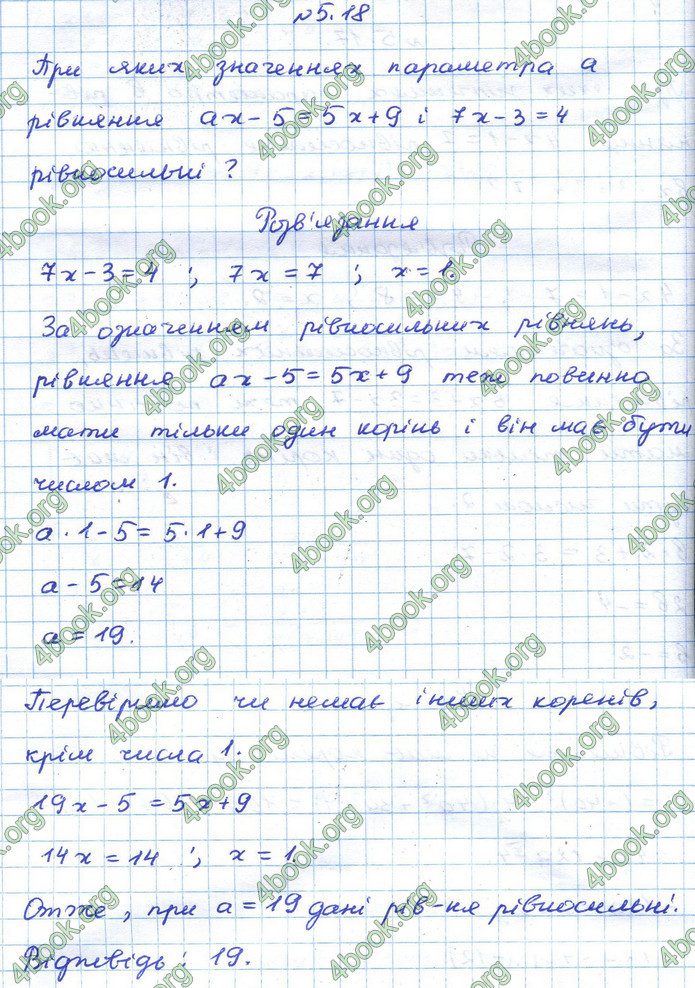 №5.18
При яких значеннях параметра а
рівняння ах - 5 = 5х + 9 і 7х - 3 = 4
рівносильні ?
Розв'язання
7х - 3 = 4 ; 7х = 7 ; х = 1.
За означенням рівносильних рівнянь,
рівняння ах - 5 = 5х + 9 теж повинно
мати тільки один корінь і він має бути
числом 1.
а · 1 - 5 = 5 · 1 + 9
а - 5 = 14
а = 19.
Перевіримо чи немає інших коренів,
крім числа 1.
19х - 5 = 5х + 9
14х = 14 ; х = 1.
Отже, при а = 19 дані рів-ня рівносильні.
Відповідь : 19.
4book.org